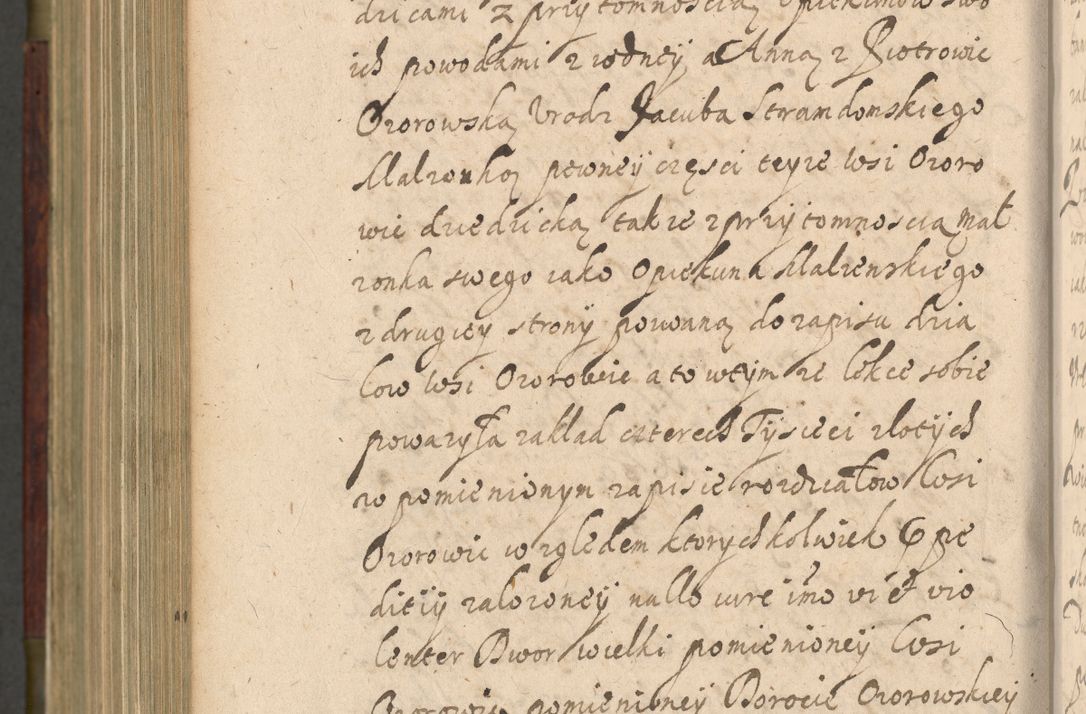 dzicami z przytomnoscią Opiekunow swo
ich powodami z iedney a Anną z Piotrowic
Ozorowską Urodz Jacuba Stramdomskiego
Małzonką pewney części teyze wsi Ozoro
wic dziedzicką takze z przytomnoscią mał
zonka swego iako Opiekuna Malzenskiego
z drugiey strony pozwaną do zapisu dzia
łow wsi Ozorowic a to wtym ze lekce sobie
powazyła zakład czterech Tysięci zlotych
w pomienionym zapisie rozdziałow wsi
Ozorowic w zględem ktorychkolwiek Expe
ditiy załozoney nullo iure imo vi et vio
lenter Dwor wielki pomienioney wsi
Ozorowic pomienioney Dorocie Ozorowskiey